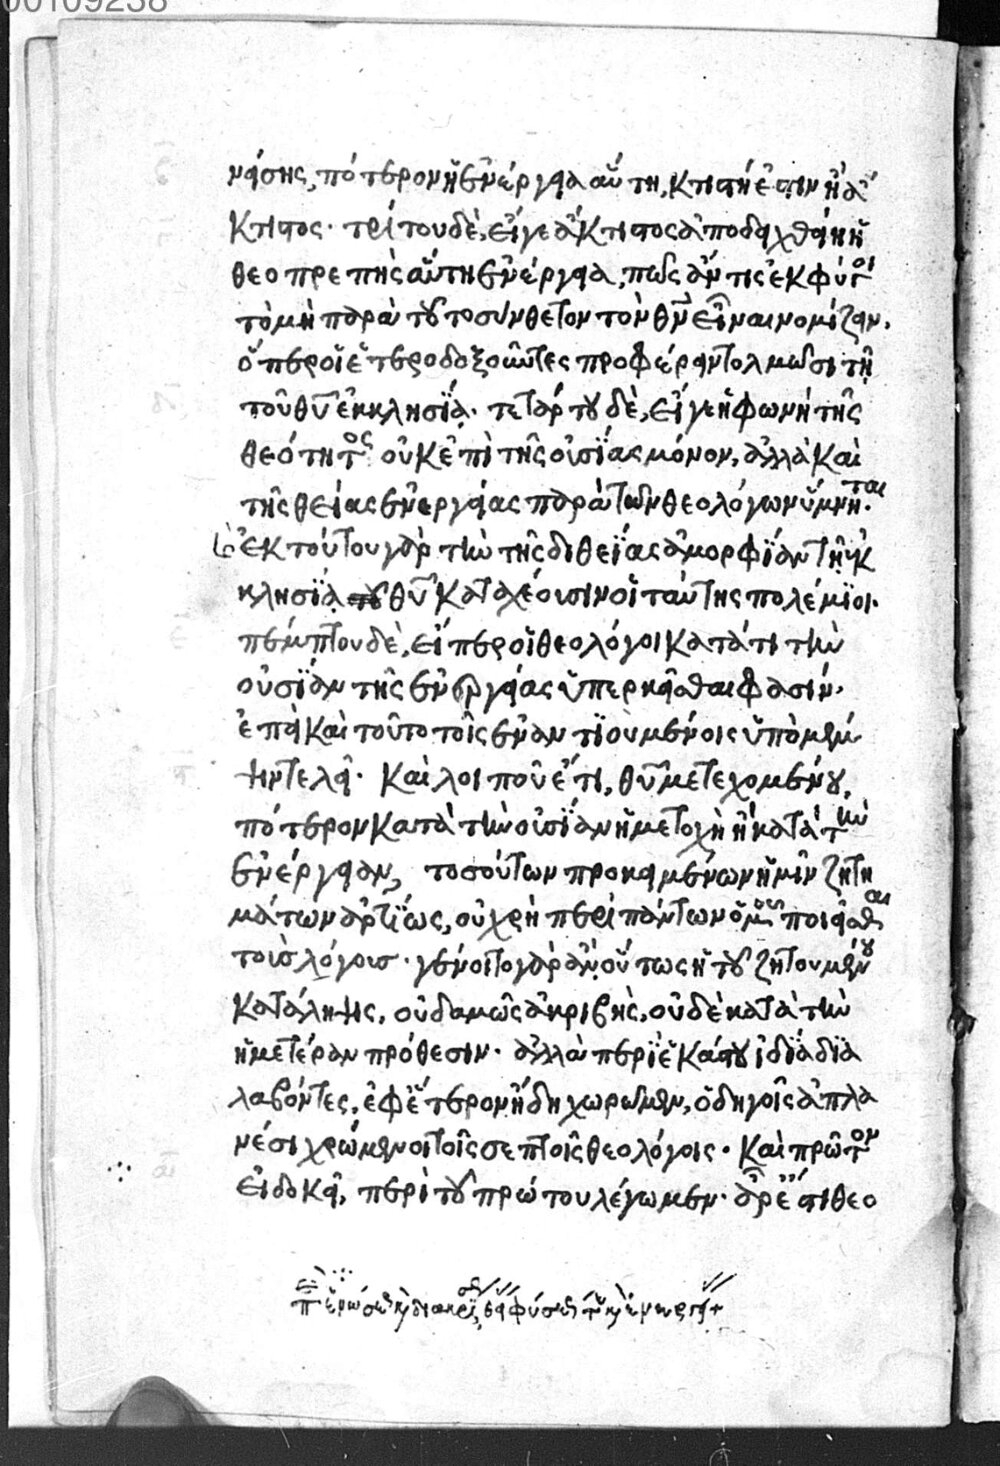 00109258
νάσης, πότερον ἡ ἐνέργεια αὕτη, κτιστή ἐστιν ἢ ἄ
κτιστος· τρίτου δὲ, εἴγε ἄκτιστος ἀποδειχθείη ἡ
θεοπρεπὴς αὕτη ἐνέργεια, πῶς ἄν τις ἐκφύγοι
τὸ μὴ παρὰ τοῦτο σύνθετον τὸν θν εἶναι νομίζειν.
ὅπερ οἱ ἑτεροδοξοῦντες προφέρειν τολμῶσι τῇ
τοῦ θυ ἐκκλησίᾳ· τετάρτου δὲ, εἴγε ἡ φωνὴ τῆς
θεότητος οὐκ ἐπὶ τῆς οὐσίας μόνον, ἀλλὰ καὶ
τῆς θείας ἐνεργείας παρὰ τῶν θεολόγων ὕμνηται.
ἐκ τούτου γὰρ τὴν τῆς διθεΐας ἀμορφίαν τῇ ἐκ
κλησίᾳ τοῦ θυ καταχέουσιν οἱ ταύτης πολέμιοι.
πέμπτου δὲ, εἴπερ οἱ θεολόγοι κατά τι τὴν
οὐσίαν τῆς ἐνεργείας ὑπερκεῖσθαι φασίν.
ἐπεὶ καὶ τοῦτο τοῖς ἐναντιουμένοις ὑπὸ μέμ
ψιν τελεῖ. καὶ λοιποῦ ἔτι, θυ μετεχομένου,
πότερον κατὰ τὴν οὐσίαν ἡ μετοχὴ ἢ κατὰ τὴν
ἐνέργειαν, τοσούτων προκειμένων ἡμῖν ζητη
μάτων ἀρτίως, οὐ χρὴ περὶ πάντων ὁμοῦ ποιεῖσθαι
τοὺς λόγους· γένοιτο γὰρ ἂν οὕτως ἡ τοῦ ζητουμένου
κατάληψις, οὐδαμῶς ἀκριβής, οὐδὲ κατὰ τὴν
ἡμετέραν πρόθεσιν. ἀλλὰ περὶ ἑκάστου ἰδίᾳ δια
λαβόντες, ἐφ' ἕτερον ἤδη χωρῶμεν, ὁδηγοῖς ἀπλα
νέσι χρώμενοι τοῖς σεπτοῖς θεολόγοις. καὶ πρῶτον
εἰ δοκεῖ, περὶ τοῦ πρώτου λέγωμεν· ἆρ' ἔστι θεο